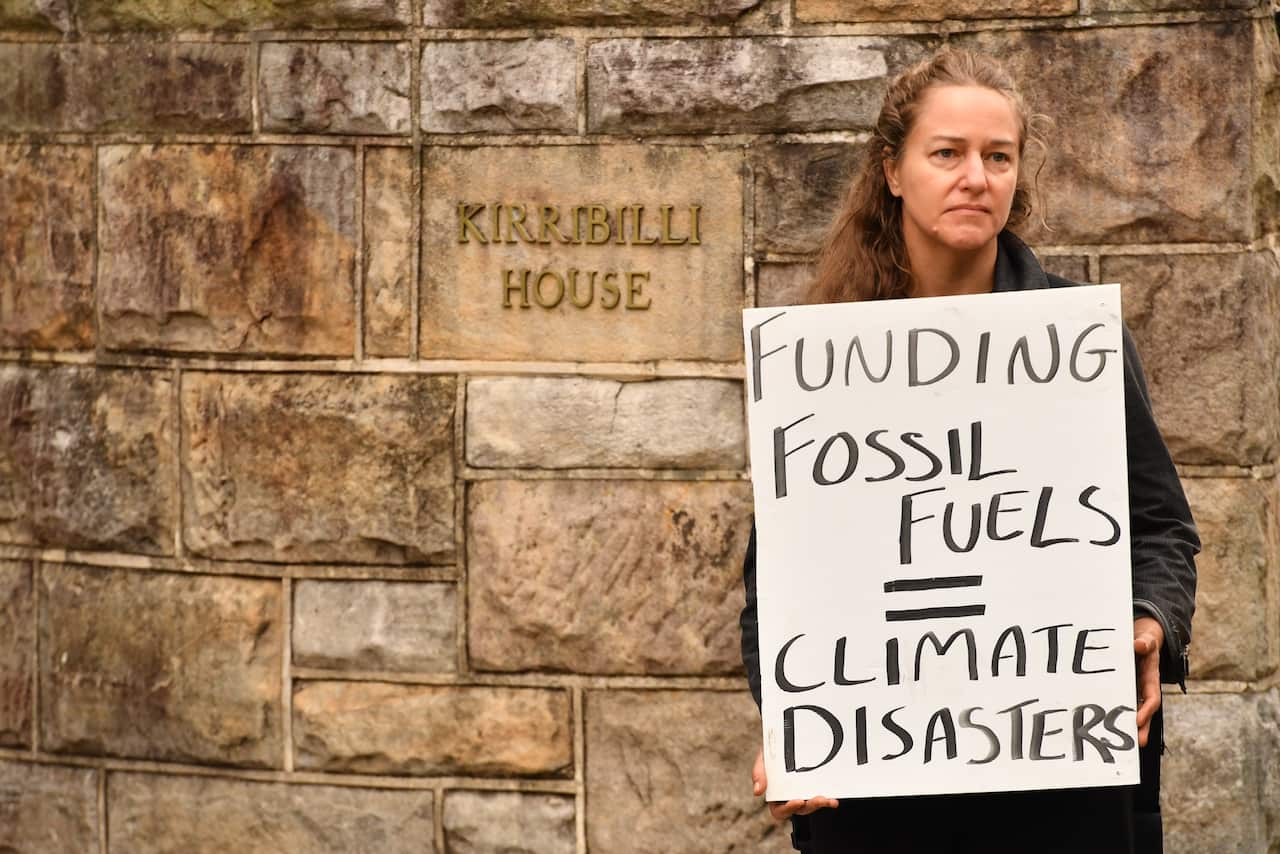 KIRRIBILLI
HOUSE
FUNDING
FOSSIL
FUELS
=
CLIMATE
DISASTERS